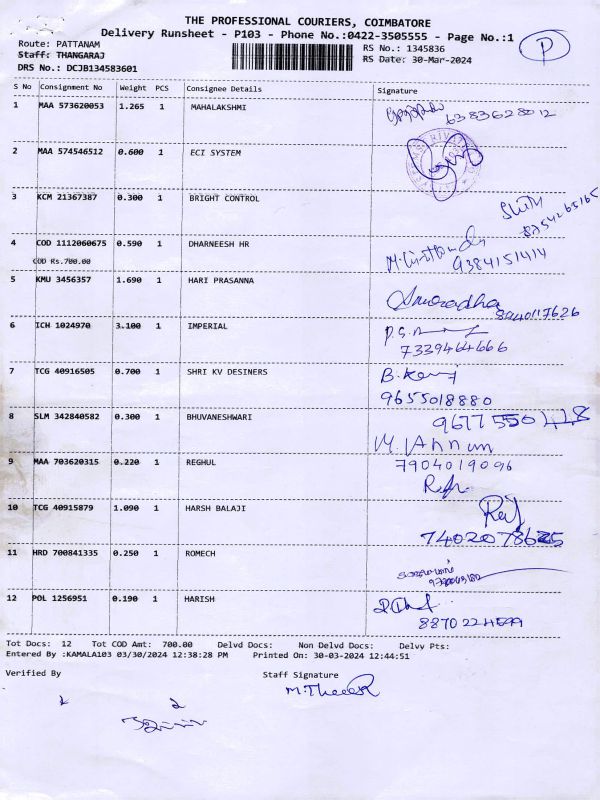 THE PROFESSIONAL COURIERS, COIMBATORE
Delivery Runsheet - P103 - Phone No.:0422-3505555 - Page No.:1
P
Route: PATTANAM
RS No.: 1345836
Staff: THANGARAJ
RS Date: 30-Mar-2024
DRS No.: DCJB134583601
S No Consignment No Weight PCS Consignee Details Signature
1 MAA 573620053 1.265 1 MAHALAKSHMI
6383628012
2 MAA 574546512 0.600 1 ECI SYSTEM
3 KCM 21367387 0.300 1 BRIGHT CONTROL
8754265165
4 COD 1112060675 0.590 1 DHARNEESH HR
COD Rs.700.00
9384151414
5 KMU 3456357 1.690 1 HARI PRASANNA
Anuradha
8940117626
6 ICH 1024970 3.100 1 IMPERIAL
P.S.
7339464666
7 TCG 40916505 0.700 1 SHRI KV DESINERS
B.
9655018880
8 SLM 342840582 0.300 1 BHUVANESHWARI
9677550428
M
9 MAA 703620315 0.220 1 REGHUL
7904019096
10 TCG 40915879 1.090 1 HARSH BALAJI
7402078625
11 HRD 700841335 0.250 1 ROMECH
12 POL 1256951 0.190 1 HARISH
Tot Docs: 12 Tot COD Amt: 700.00 Delvd Docs: Non Delvd Docs: Delvy Pts:
Entered By :KAMALA103 03/30/2024 12:38:28 PM Printed On: 30-03-2024 12:44:51
Verified By Staff Signature